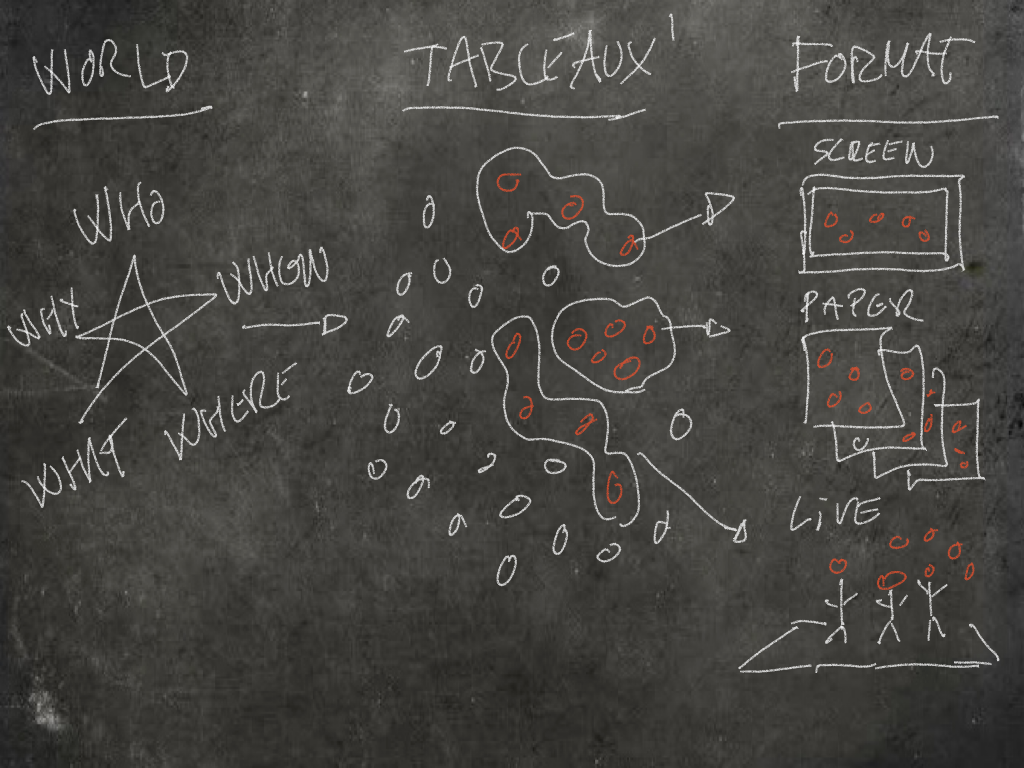 WORLD
TABLEAUX'
FORMAT
SCREEN
WHO
WHEN
WHY
WHAT
WHERE
PAPER
LIVE